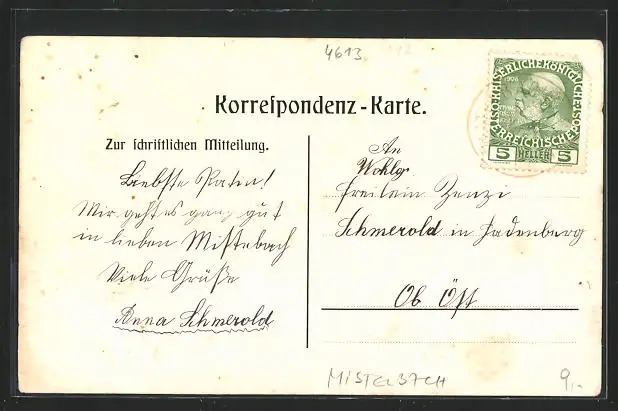 4613
Korrespondenz-Karte.
Zur schriftlichen Mitteilung.
KAISERLICHE KÖNIGLICHE ÖSTERREICHISCHE POST
1908
5 HELLER 5
Liebste Patin!
Mir geht es ganz gut
in lieben Mistelbach
Viele Grüße
Anna Schmerold
An
Wohlg
Freilein Zenzi
Schmerold in
Ob Öst
MISTELBACH
9,-